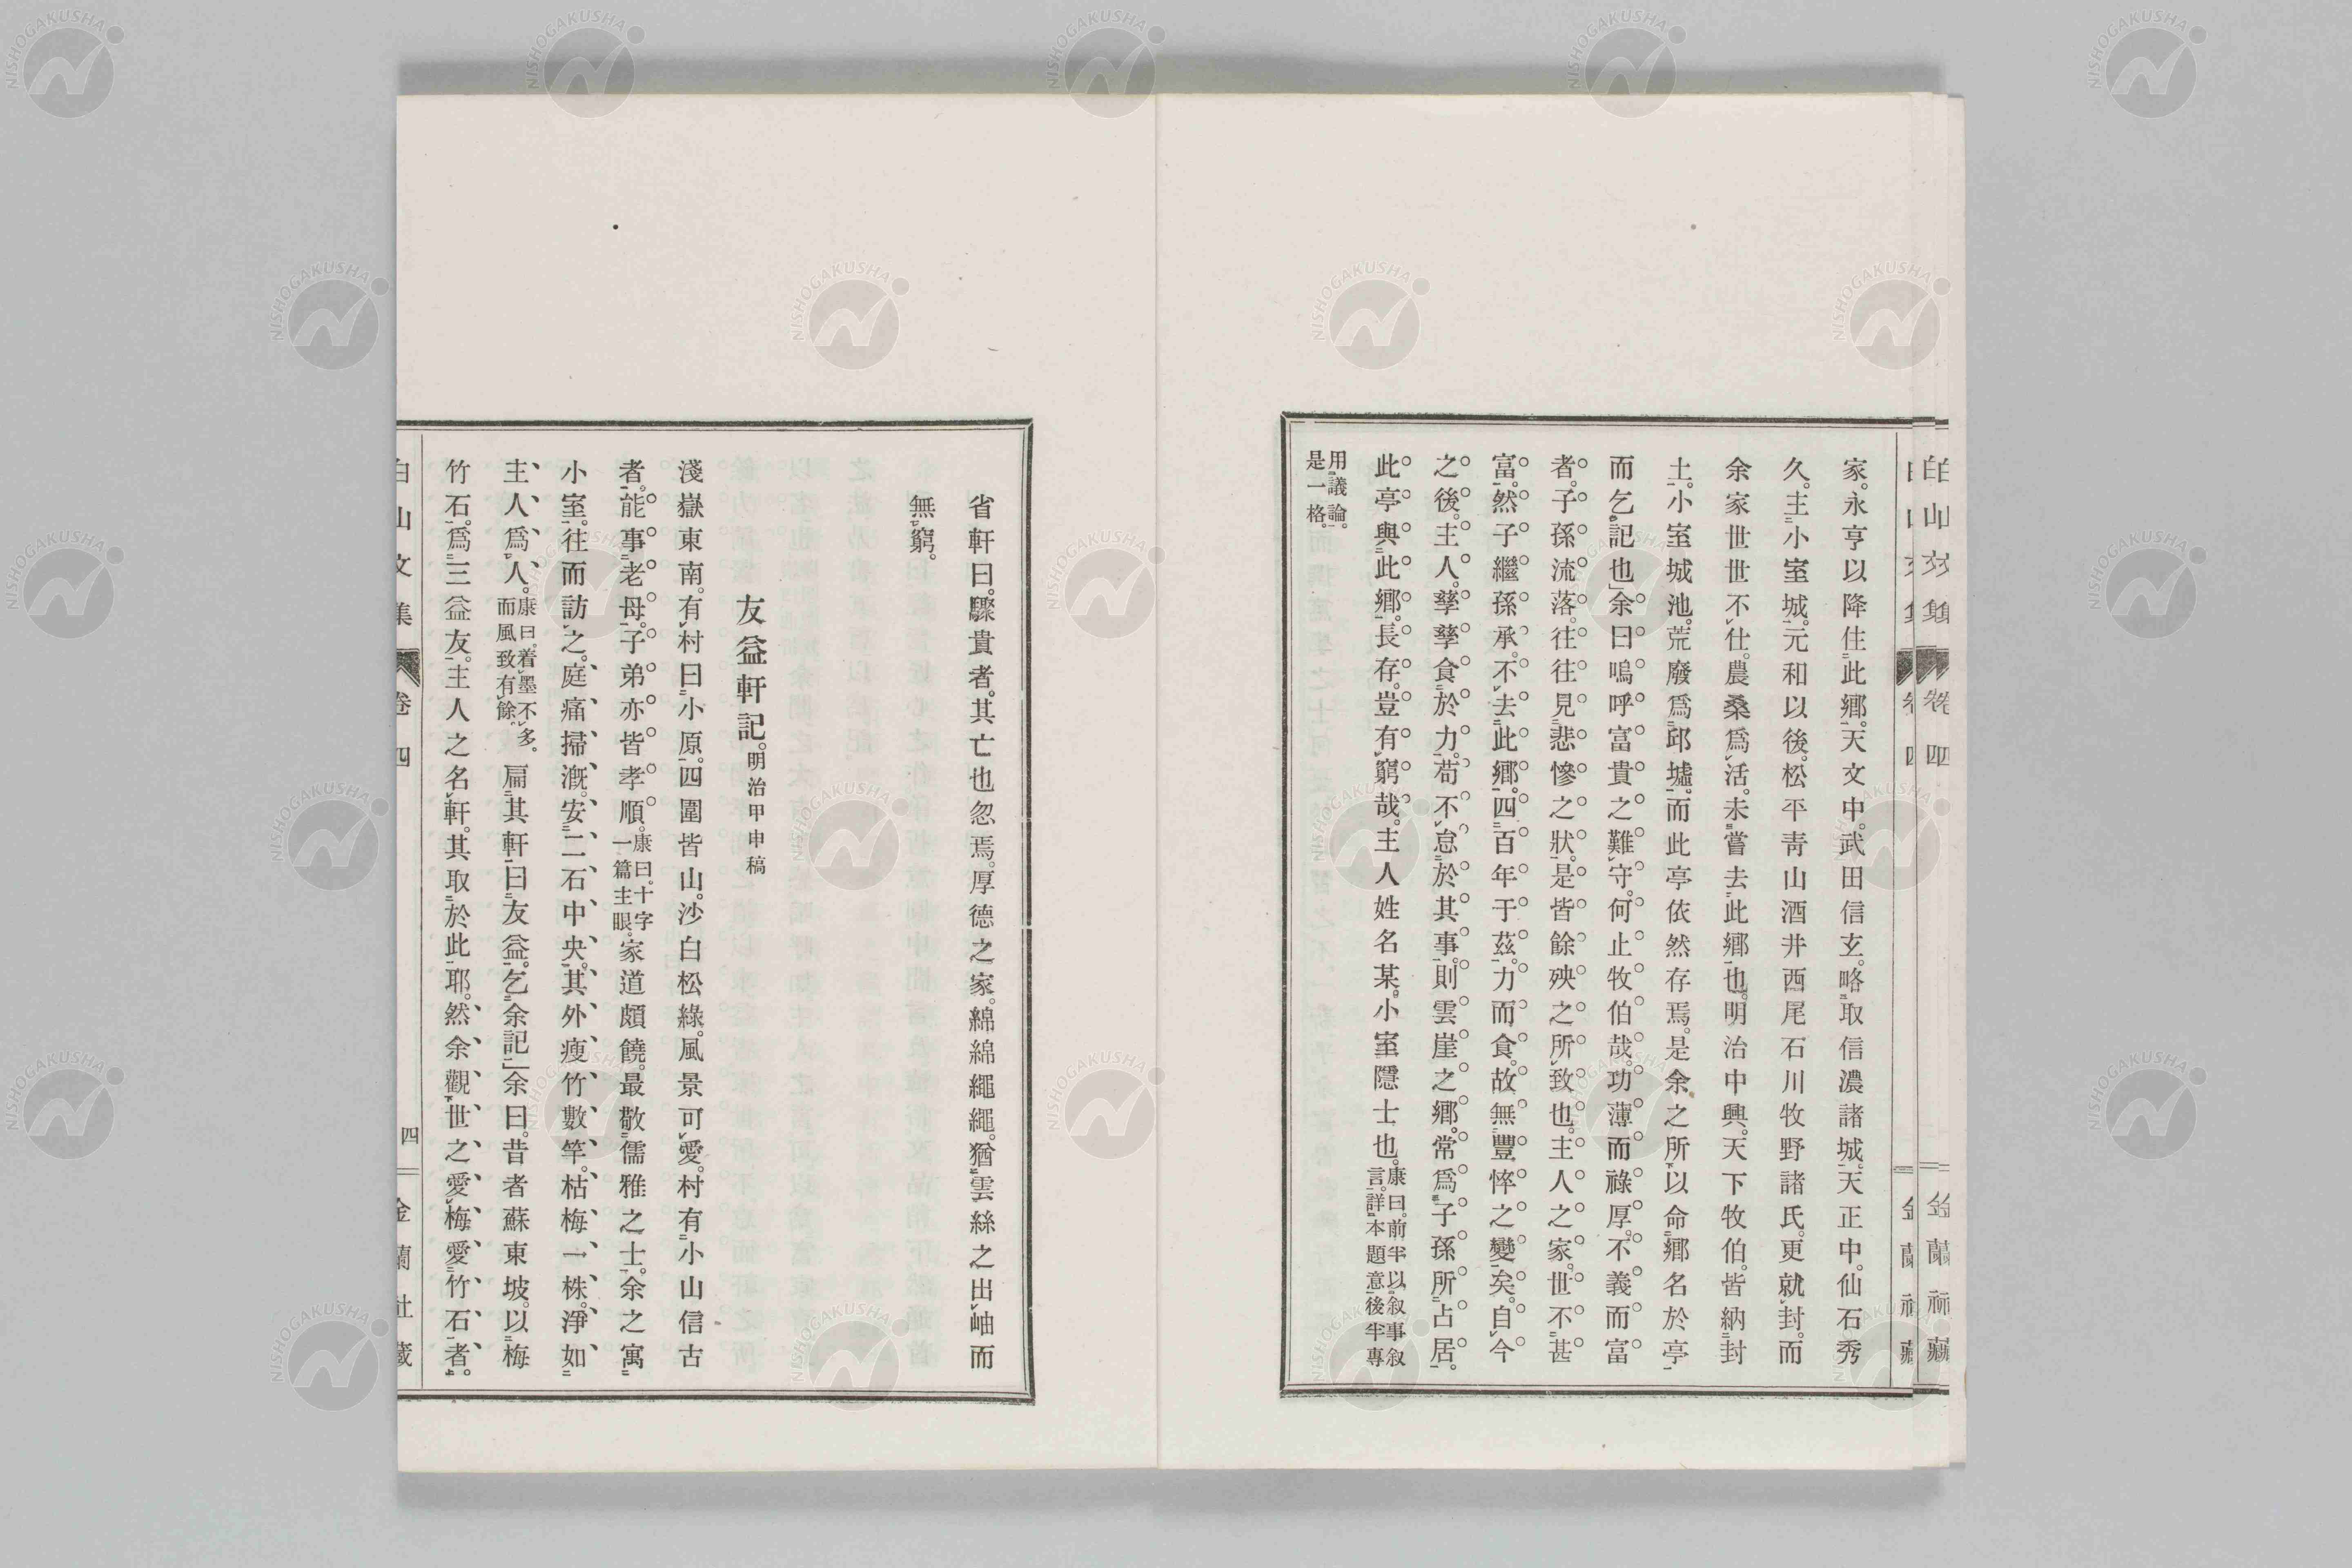 家。永亨以降住此鄉。天文中。武田信玄。略取信濃諸城。天正中。仙石秀
久。主小室城。元和以後。松平靑山酒井西尾石川牧野諸氏。更就封。而
余家世世不仕。農桑爲活。未嘗去此鄉也。明治中興。天下牧伯。皆納封
土。小室城池。荒廢爲邱墟。而此亭依然存焉。是余之所以命鄉名於亭
而乞記也」余曰嗚呼富貴之難守。何止牧伯哉。功薄而祿厚。不義而富
者。子孫流落。往往見悲慘之狀。是皆餘殃之所致也。主人之家。世不甚
富。然子繼孫承。不去此鄉。四百年于茲。力而食。故無豐悴之變矣。自今
之後。主人。孳孳食於力。苟不怠於其事。則雲崖之鄉。常爲子孫所占居。
此亭與此鄉。長存。豈有窮哉。主人姓名某。小室隱士也。康曰。前半以叙事叙
言。詳本題意。後半專
用議論。
是一格。
省軒曰。驟貴者。其亡也忽焉。厚德之家。綿綿繩繩。猶雲絲之出岫而
無窮。
友益軒記。明治甲申稿
淺嶽東南。有村曰小原。四圍皆山。沙白松綠。風景可愛。村有小山信古
者。能事老母。子弟亦皆孝順。康曰。十字
一篇主眼。家道頗饒。最敬儒雅之士。余之寓
小室。往而訪之。庭痛掃漑。安二石中央。其外瘦竹數竿。枯梅一株。淨如
主人爲人。康曰。着墨不多。
而風致有餘。扁其軒曰友益。乞余記」余曰。昔者蘇東坡。以梅
竹石。爲三益友。主人之名軒。其取於此耶。然余觀世之愛梅愛竹石者。
白山文集
卷四
四
金蘭社藏